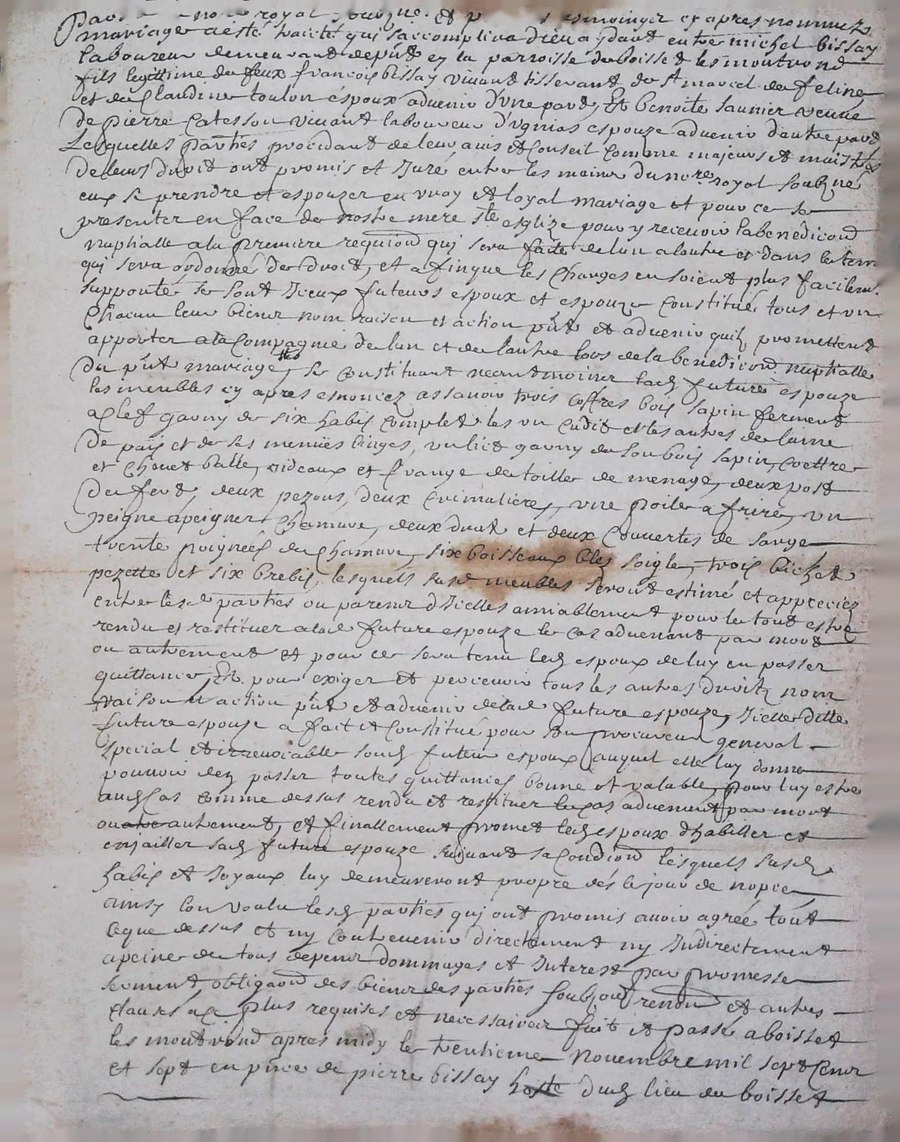 royal soubzne et apres nommez
mariage a esté traicté qui saccomplira dieu aydant entre michel bissay
laboureur demeurant de pnt en la parroisse du boisset les montrond
fils legitime de feux francois bissay vivant tisserant de st marcel de feline
et de Claudine toulon espoux advenir d'une part, Et benoite saunier veuve
de pierre vivant laboureur espouze advenir dautre part
Lesquelles parties procedant de leurs avis et Conseil Comme majeurs et maistres
de leurs droit ont promis et Juré entre les mains du nore royal soubzne
eux se prendre et espouzer en vray et loyal mariage et pour ce se
presenter en face de nostre mere ste esglize pour y recevoir la benedicon
nuphalle a la premiere requion qui sera faite de lun a lautre et dans le tem
qui sera ordonné de droit, et a finque les Charges en soient plus facilem
supporté se sont Iceux futeurs espoux et espouze Constitué tous et un
Chacun leur biens nom raison et action pnt et advenir quils promettent
apporter a la Compagnie de lun et de lautre lors de la benedicon nuphalle
du pnt mariage, se Constituant neantmoins lad future espouze
les meubles cy apres enoncez assavoir trois coffres bois sapin ferment
a clef garny de six habis Complet les un Cadis et les autres de laine
de païs et de ses menües linges, un lict garny du sou bois sapin, Coettre
et Chevet balle, rideaux et frange de toille de menage, deux post
de fert, deux pezons, deux Cremaliere, une poile a frire, un
peigne a peigner Chanvre, deux drat et deux Couvertes de sarge
trente poignées de Chanvre, six boisseaux bled soigle, trois bichet
pezette et six brebis, lesquels susd meubles seront estimé et appreciez
entre lesd parties ou parens dIcelles amiablement pour le tout estre
rendu et restituer a lad future espouze le cas advenant par mort
ou autrement et pour ce sera tenu led espoux de luy en passer
quittance, Et pour exiger et percevoir tous les autres droits nom
raison et action pnt et advenir de lad future espouze, Icelle dite
future espouze a fait et Constitué pour son procureur general
special et irrevocable sond futeur espoux auquel elle luy donne
pouvoir den passer toutes quittances bonne et valable, pour luy estre
aud Cas comme dessus rendu et restituer le cas advenant par mort
ou autrement, et finallement promet led espoux dhabiller et
enjailler sad future espouze suivant sa Condion lesquels susd
habis et Joyaux luy demeureront propre des le jour de nopce
ainsy lon voulu lesd parties qui ont promis avoir agreé tout
ce que dessus et ny Contrevenir directement ny Indirectement
a peine de tous depens dommages et Interest par promesse
serment, obligaon des biens des parties soubzon renon et autres
clauses a ce plus requises et necessaires fait et passé a boisset
les montrond apres midy le trentieme novembre mil sept Cens
et sept en pnce de pierre bissay hoste dud lieu du boisset